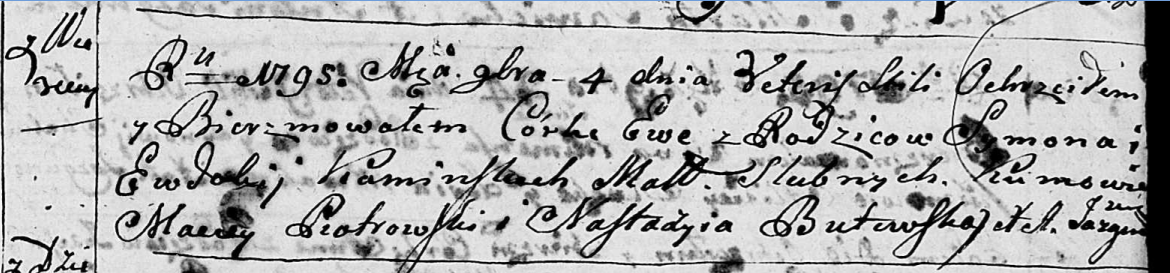 z Wie
rzeiy
Ru 1795. Mca. 9bra - 4 dnia Veteris Stili Ochrzciłem
y Bierzmowałem Córkę Ewę z Rodzicow Symona i
Ewdokij Kaminskich Małł. Slubnych. Kumowie
Maciey Piotrowski i Nastazyia Butewska, et A.
z Dzie